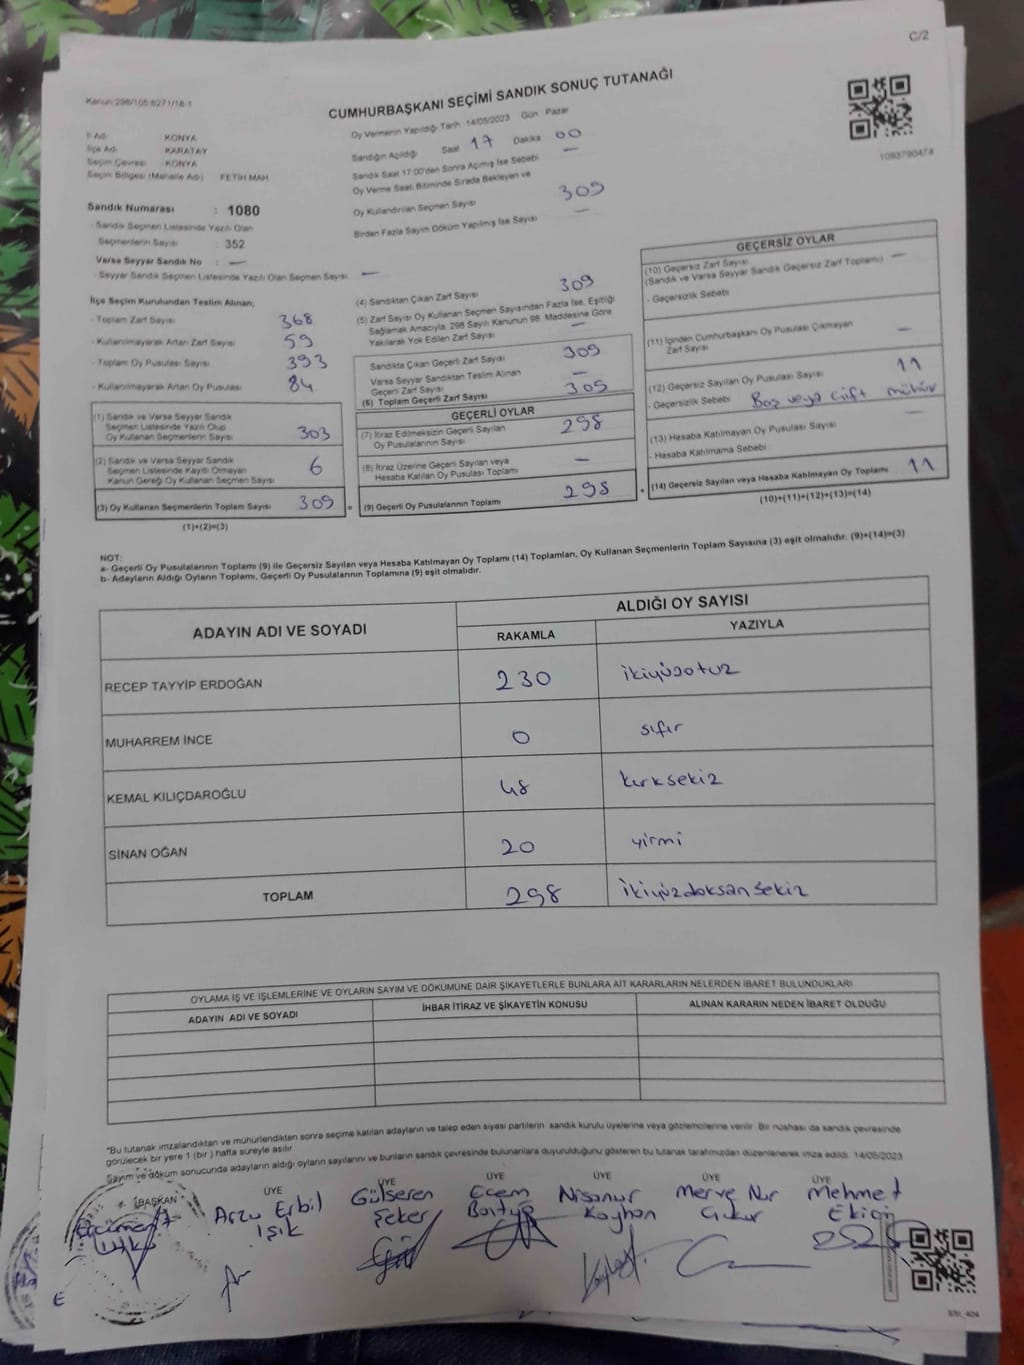 C/2
Kanun:298/105:6271/18-1
CUMHURBAŞKANI SEÇİMİ SANDIK SONUÇ TUTANAĞI
Oy Vermenin Yapıldığı Tarih 14/05/2023 Gün Pazar
İl Adı: KONYA
İlçe Adı: KARATAY
Seçim Çevresi : KONYA
Seçim Bölgesi (Mahalle Adı) FETİH MAH.
Sandık Numarası : 1080
- Sandık Seçmen Listesinde Yazılı Olan
Seçmenlerin Sayısı : 352
Varsa Seyyar Sandık No : —
- Seyyar Sandık Seçmen Listesinde Yazılı Olan Seçmen Sayısı —
Sandığın Açıldığı Saat 17 Dakika 00
Sandık Saat 17:00'den Sonra Açılmış İse Sebebi —
Oy Verme Saati Bitiminde Sırada Bekleyen ve
Oy Kullandırılan Seçmen Sayısı 309
Birden Fazla Sayım Döküm Yapılmış İse Sayısı —
1093780474
İlçe Seçim Kurulundan Teslim Alınan;
- Toplam Zarf Sayısı 368
- Kullanılmayarak Artan Zarf Sayısı 59
- Toplam Oy Pusulası Sayısı 393
- Kullanılmayarak Artan Oy Pusulası 84
(1) Sandık ve Varsa Seyyar Sandık
Seçmen Listesinde Yazılı Olup
Oy Kullanan Seçmenlerin Sayısı 303
(2) Sandık ve Varsa Seyyar Sandık
Seçmen Listesinde Kayıtlı Olmayan
Kanun Gereği Oy Kullanan Seçmen Sayısı 6
(3) Oy Kullanan Seçmenlerin Toplam Sayısı 309
(1)+(2)=(3)
(4) Sandıktan Çıkan Zarf Sayısı 309
(5) Zarf Sayısı Oy Kullanan Seçmen Sayısından Fazla İse, Eşitliği
Sağlamak Amacıyla, 298 Sayılı Kanunun 98. Maddesine Göre
Yakılarak Yok Edilen Zarf Sayısı —
Sandıkta Çıkan Geçerli Zarf Sayısı 309
Varsa Seyyar Sandıktan Teslim Alınan
Geçerli Zarf Sayısı —
(6) Toplam Geçerli Zarf Sayısı 309
GEÇERLİ OYLAR
(7) İtiraz Edilmeksizin Geçerli Sayılan
Oy Pusulalarının Sayısı 298
(8) İtiraz Üzerine Geçerli Sayılan veya
Hesaba Katılan Oy Pusulası Toplamı —
= (9) Geçerli Oy Pusulalarının Toplamı 298
GEÇERSİZ OYLAR
(10) Geçersiz Zarf Sayısı —
(Sandık ve Varsa Seyyar Sandık Geçersiz Zarf Toplamı)
- Geçersizlik Sebebi
(11) İçinden Cumhurbaşkanı Oy Pusulası Çıkmayan
Zarf Sayısı —
(12) Geçersiz Sayılan Oy Pusulası Sayısı 11
- Geçersizlik Sebebi Boş veya Çift mühür
(13) Hesaba Katılmayan Oy Pusulası Sayısı —
- Hesaba Katılmama Sebebi
+ (14) Geçersiz Sayılan veya Hesaba Katılmayan Oy Toplamı 11
(10)+(11)+(12)+(13)=(14)
NOT:
a- Geçerli Oy Pusulalarının Toplamı (9) ile Geçersiz Sayılan veya Hesaba Katılmayan Oy Toplamı (14) Toplamları, Oy Kullanan Seçmenlerin Toplam Sayısına (3) eşit olmalıdır. (9)+(14)=(3)
b- Adayların Aldığı Oyların Toplamı, Geçerli Oy Pusulalarının Toplamına (9) eşit olmalıdır.
ADAYIN ADI VE SOYADI
ALDIĞI OY SAYISI
RAKAMLA YAZIYLA
RECEP TAYYİP ERDOĞAN 230 ikiyüzotuz
MUHARREM İNCE 0 sıfır
KEMAL KILIÇDAROĞLU 48 kırksekiz
SİNAN OĞAN 20 yirmi
TOPLAM 298 ikiyüzdoksansekiz
OYLAMA İŞ VE İŞLEMLERİNE VE OYLARIN SAYIM VE DÖKÜMÜNE DAİR ŞİKAYETLERLE BUNLARA AİT KARARLARIN NELERDEN İBARET BULUNDUKLARI
ADAYIN ADI VE SOYADI İHBAR İTİRAZ VE ŞİKAYETİN KONUSU ALINAN KARARIN NEDEN İBARET OLDUĞU
*Bu tutanak imzalandıktan ve mühürlendikten sonra seçime katılan adayların ve talep eden siyasi partilerin sandık kurulu üyelerine veya gözlemcilerine verilir. Bir nüshası da sandık çevresinde
görülecek bir yere 1 (bir) hafta süreyle asılır.
Sayım ve döküm sonucunda adayların aldığı oyların sayılarını ve bunların sandık çevresinde bulunanlara duyurulduğunu gösteren bu tutanak tarafımızdan düzenlenerek imza edildi. 14/05/2023
BAŞKAN ÜYE ÜYE ÜYE ÜYE ÜYE ÜYE
Arzu Erbil Gülseren Ecem Nisanur Merve Nur Mehmet
Işık Şeker Kayhan Ekici